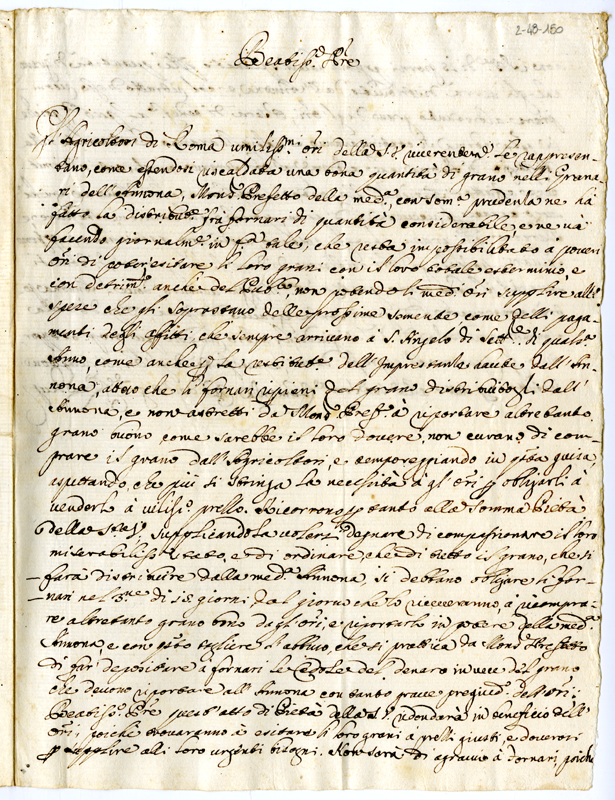 2-48-150
Beatiss.º Pre
Gl'Agricoltori di Roma umiliss.mi Ori della S.V. riverentem.e Le rappresen-
tano, come essendosi riscaldata una bona quantità di grano nelli Grana-
ri dell'Annona, Mons.r Prefetto della med.a, con som.a prudenza ne hà
fatto la distribuz.e frà fornari di quantità considerabile, e ne và
facendo giornalm.e in f.a tale, che resta impossibilitato à poveri
Ori di poter esitare li loro grani con il loro totale esterminio, e
con detrim.to anche del Publ.co, non potendo li med.i Ori supplire alle
spese che gli soprastano delle prossime semente come delli paga-
menti degli affitti, che sempre arrivano à S. Angelo di Sett.e di quals.a
Anno, come anche p la restituz.e dell'Imprestanza havute dall'An-
nona, atteso che li fornari ripieni del grano distribuitogli dall'
Annona, e non astretti da Mons.r Pref.o à riportare altretanto
grano buono come sarebbe il loro dovere, non curano di com-
prare il grano dall'Agricoltori, e temporeggiando in q.sta guisa,
aspettando, che più si stringa la necessità à gl'Ori p obligarli à
venderlo à viliss.o prezzo. Ricorrono p tanto alla somma Pietà
della S.tà V. supplicandola volersi degnare di compassionare il loro
miserabiliss.o stato, e di ordinare, che di tutto il grano, che si
farà distribuire dalla med.a Annona, si debbano obligare li for-
nari nel t.ne di 15 giorni dal giorno che lo riceveranno, à ricompra-
re altretanto grano bono dagl'Ori, e riportarlo in potere della med.a
Annona e con q.sto togliere l'abuso, che si prattica da Mons.r Prefetto
di far depositare i fornari le Cedole del denaro in vece del grano
che devono riportare all'Annona con tanto grave pregiud.o dell'Ori.
Beatiss.º Pre quest'atto di Pietà della S.V. ridonderà in beneficio dell'
Ori, poiche troveranno à esitare li loro grani à prezzi giusti, e doverosi
p supplire alli loro urgenti bisogni. Non sarà di agravio à fornari poiche